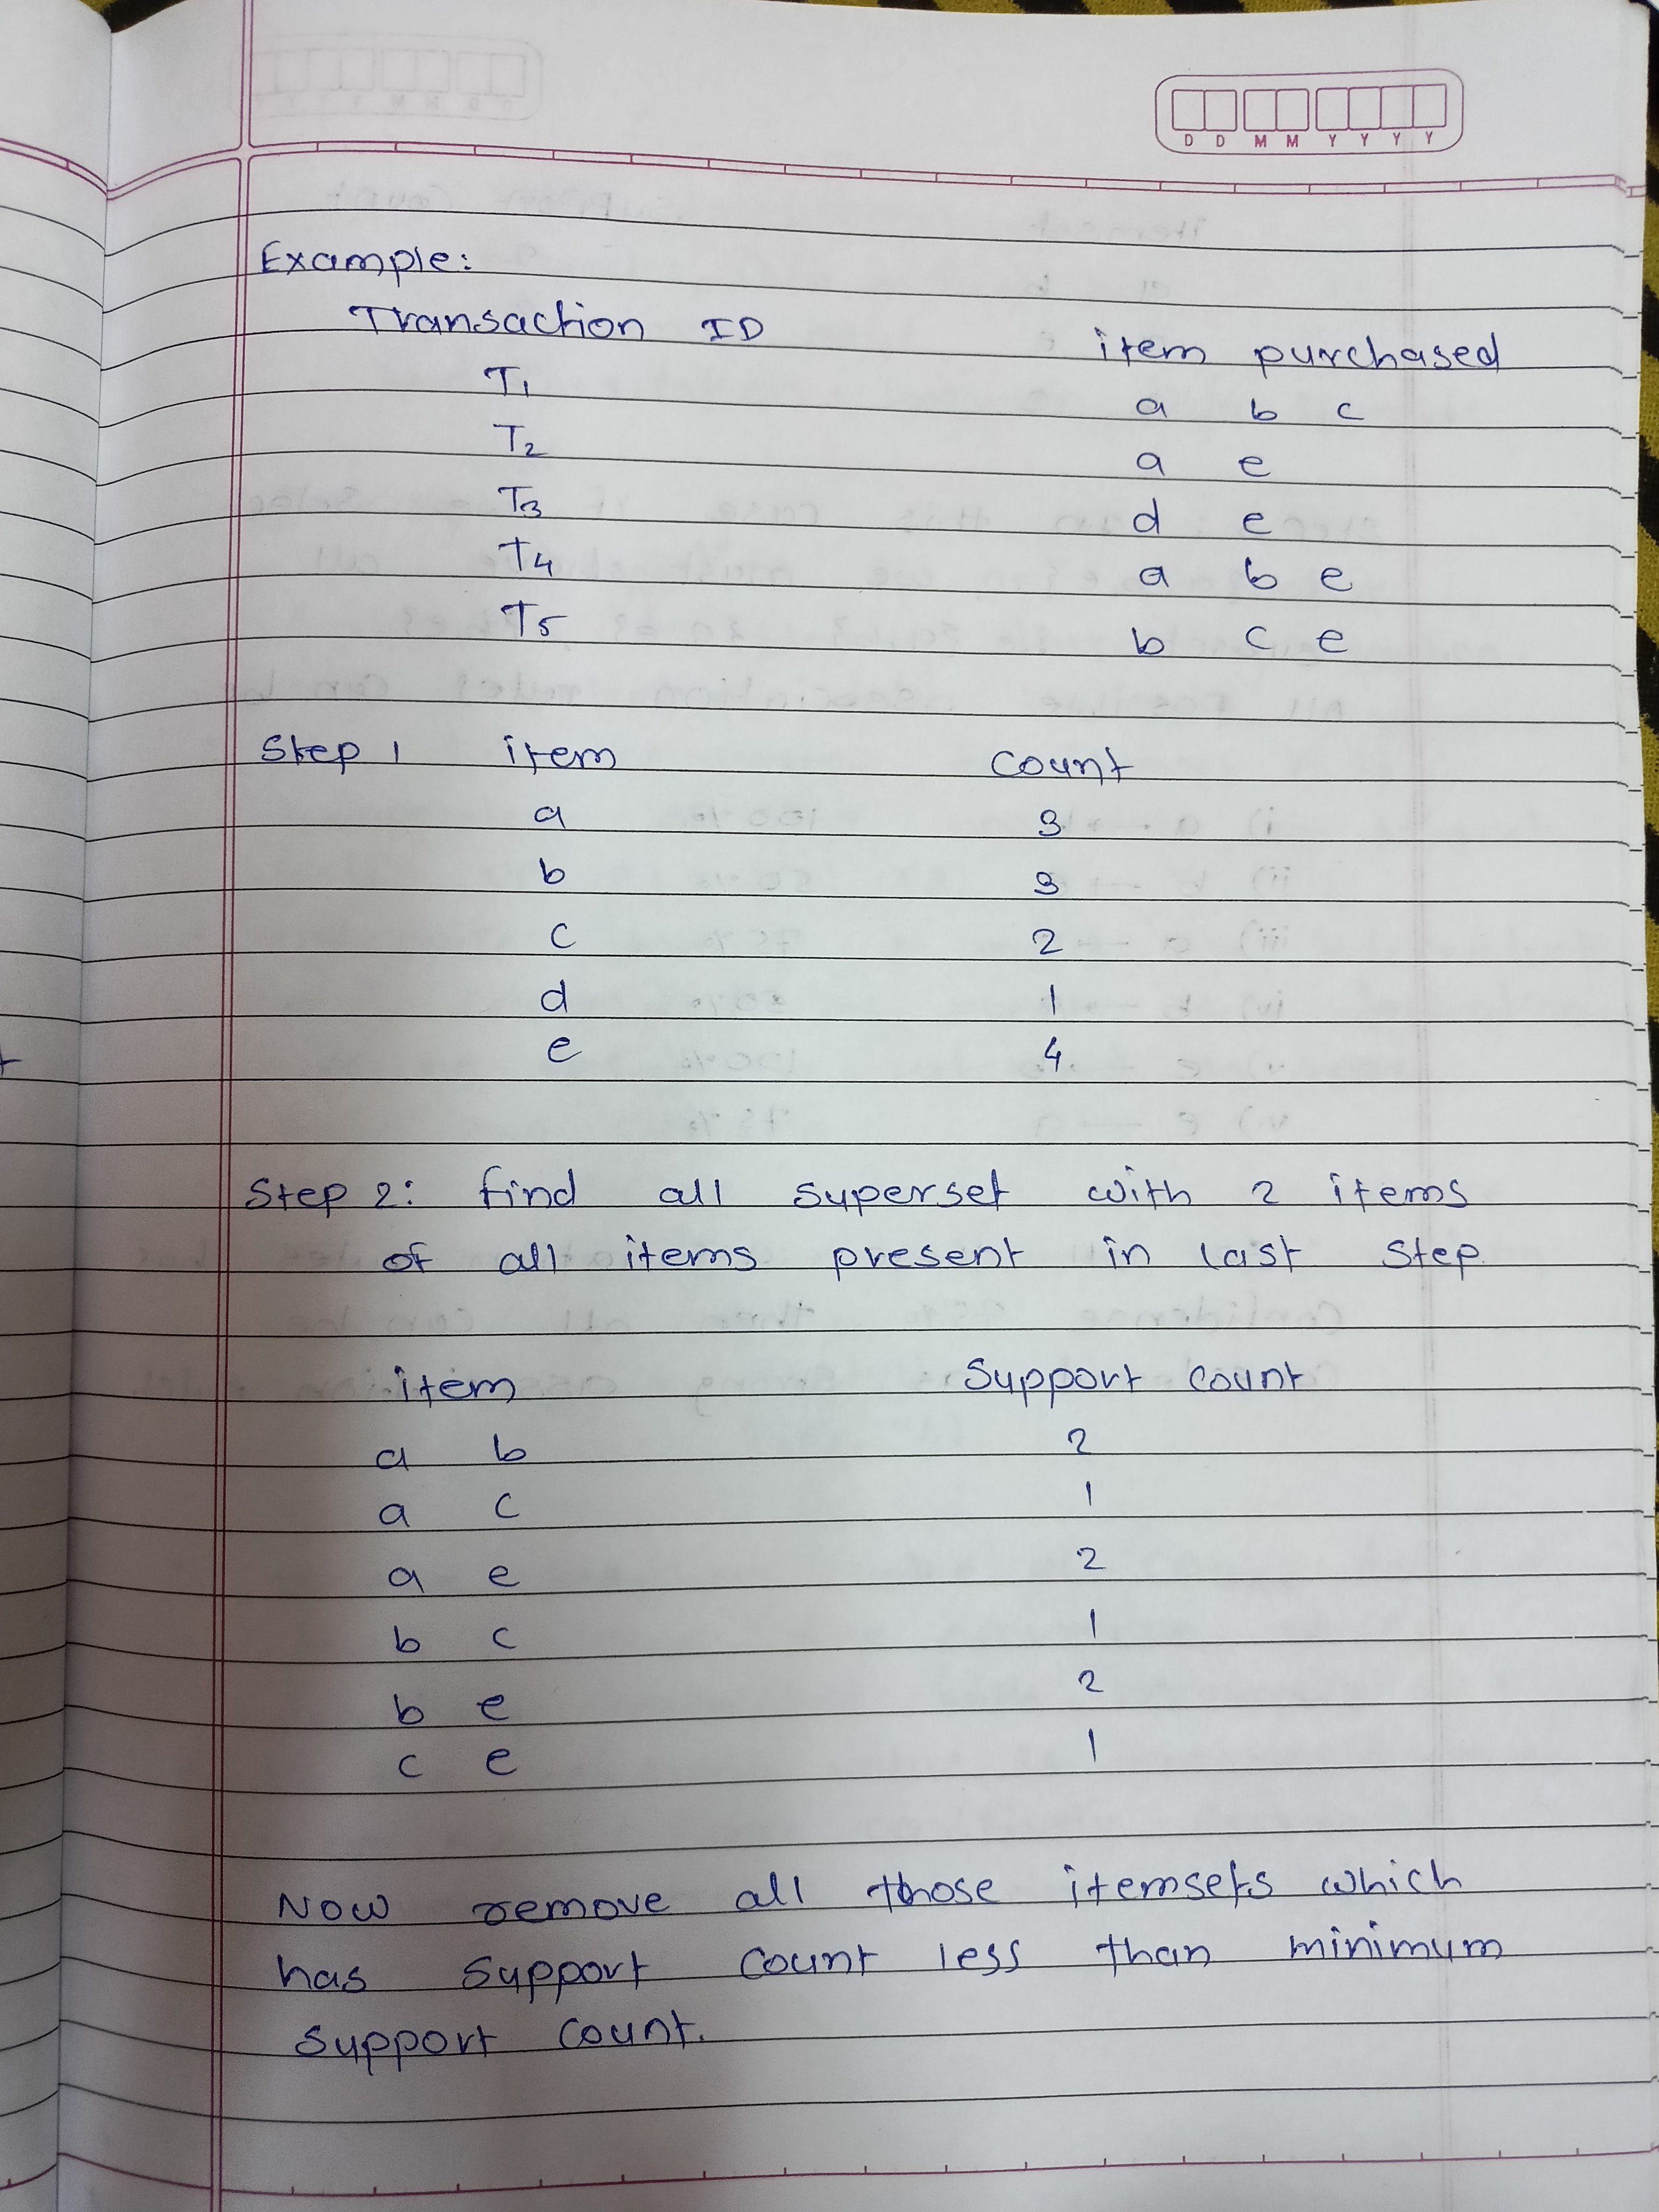 D D M M Y Y Y Y
Example:
Transaction ID item purchased
T1 a b c
T2 a e
T3 d e
T4 a b e
T5 b c e
Step 1 item count
a 3
b 3
c 2
d 1
e 4
Step 2: find all superset with 2 items
of all items present in last step
item Support count
a b 2
a c 1
a e 2
b c 1
b e 2
c e 1
Now remove all those itemsets which
has support count less than minimum
support count.